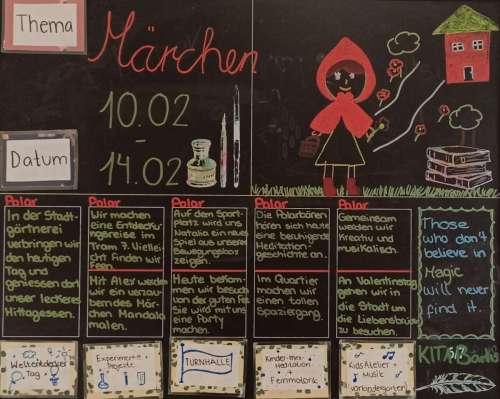 Thema
Märchen
10.02
-
14.02
Datum
Polar
In der Stadt-
gärtnerei
verbringen wir
den heutigen
Tag und
geniessen dort
unser leckeres
Mittagessen.
Polar
Wir machen
eine Entdeckungs-
reise im
Tram 7. Vielleicht
finden wir
Feen.
Mit Alex werden
wir ein verzau-
berndes Mär-
chen Mandala
malen.
Polar
Auf dem Sport-
platz wird uns
Natalia ein neues
Spiel aus unserer
Bewegungsbox
zeigen.
Heute bekom-
men wir besuch
von der guten Fee
Sie wird mit uns
eine Party
machen.
Polar
Die Polarbären
hören sich heute
eine beruhigende
Meditation-
geschichte an.
Im Quartier
machen wir
einen tollen
Spaziergang.
Polar
Gemeinsam
werden wir
Kreativ und
musikalisch.
An Valentinstag
gehen wir in
die Stadt um
die Liebesbrücke
zu besuchen.
Those
who don't
believe in
Magic
will never
find it.
Weltentdecker
Tag
Experimente +
Projekte
TURNHALLE
Kinder-
Meditation
+
Feinmotorik
Kids Atelier +
Musik
Vorkindergarten
KITA